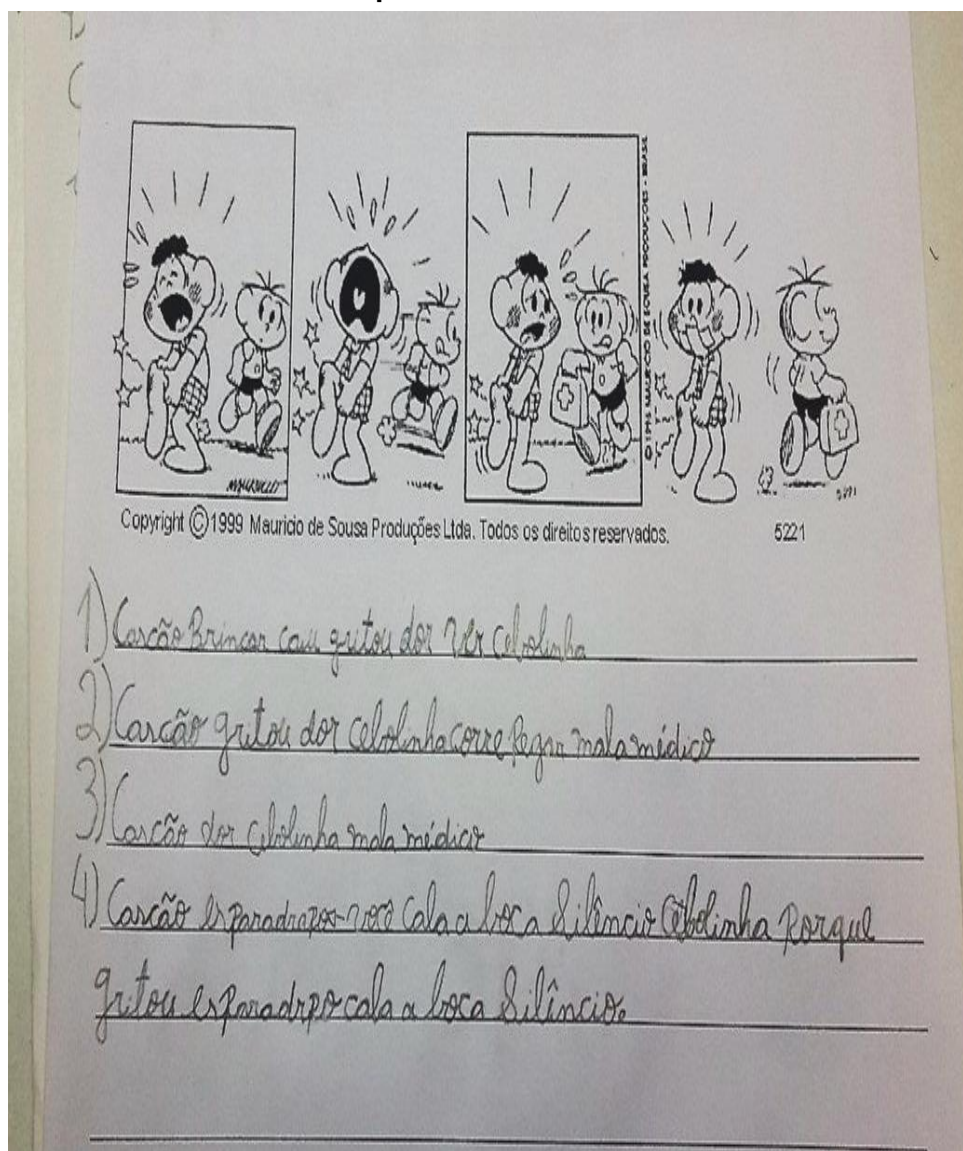 © 1999 MAURICIO DE SOUSA PRODUÇÕES - BRASIL
5221
Copyright © 1999 Mauricio de Sousa Produções Ltda. Todos os direitos reservados. 5221
1) Cascão Brincar caiu gritou dor ver cebolinha
2) Cascão gritou dor cebolinha corre Pegar mala médico
3) Cascão dor cebolinha mala médico
4) Cascão esparadrapo você cala a boca silêncio Cebolinha Porque
gritou esparadrpo cala a boca Silêncio.